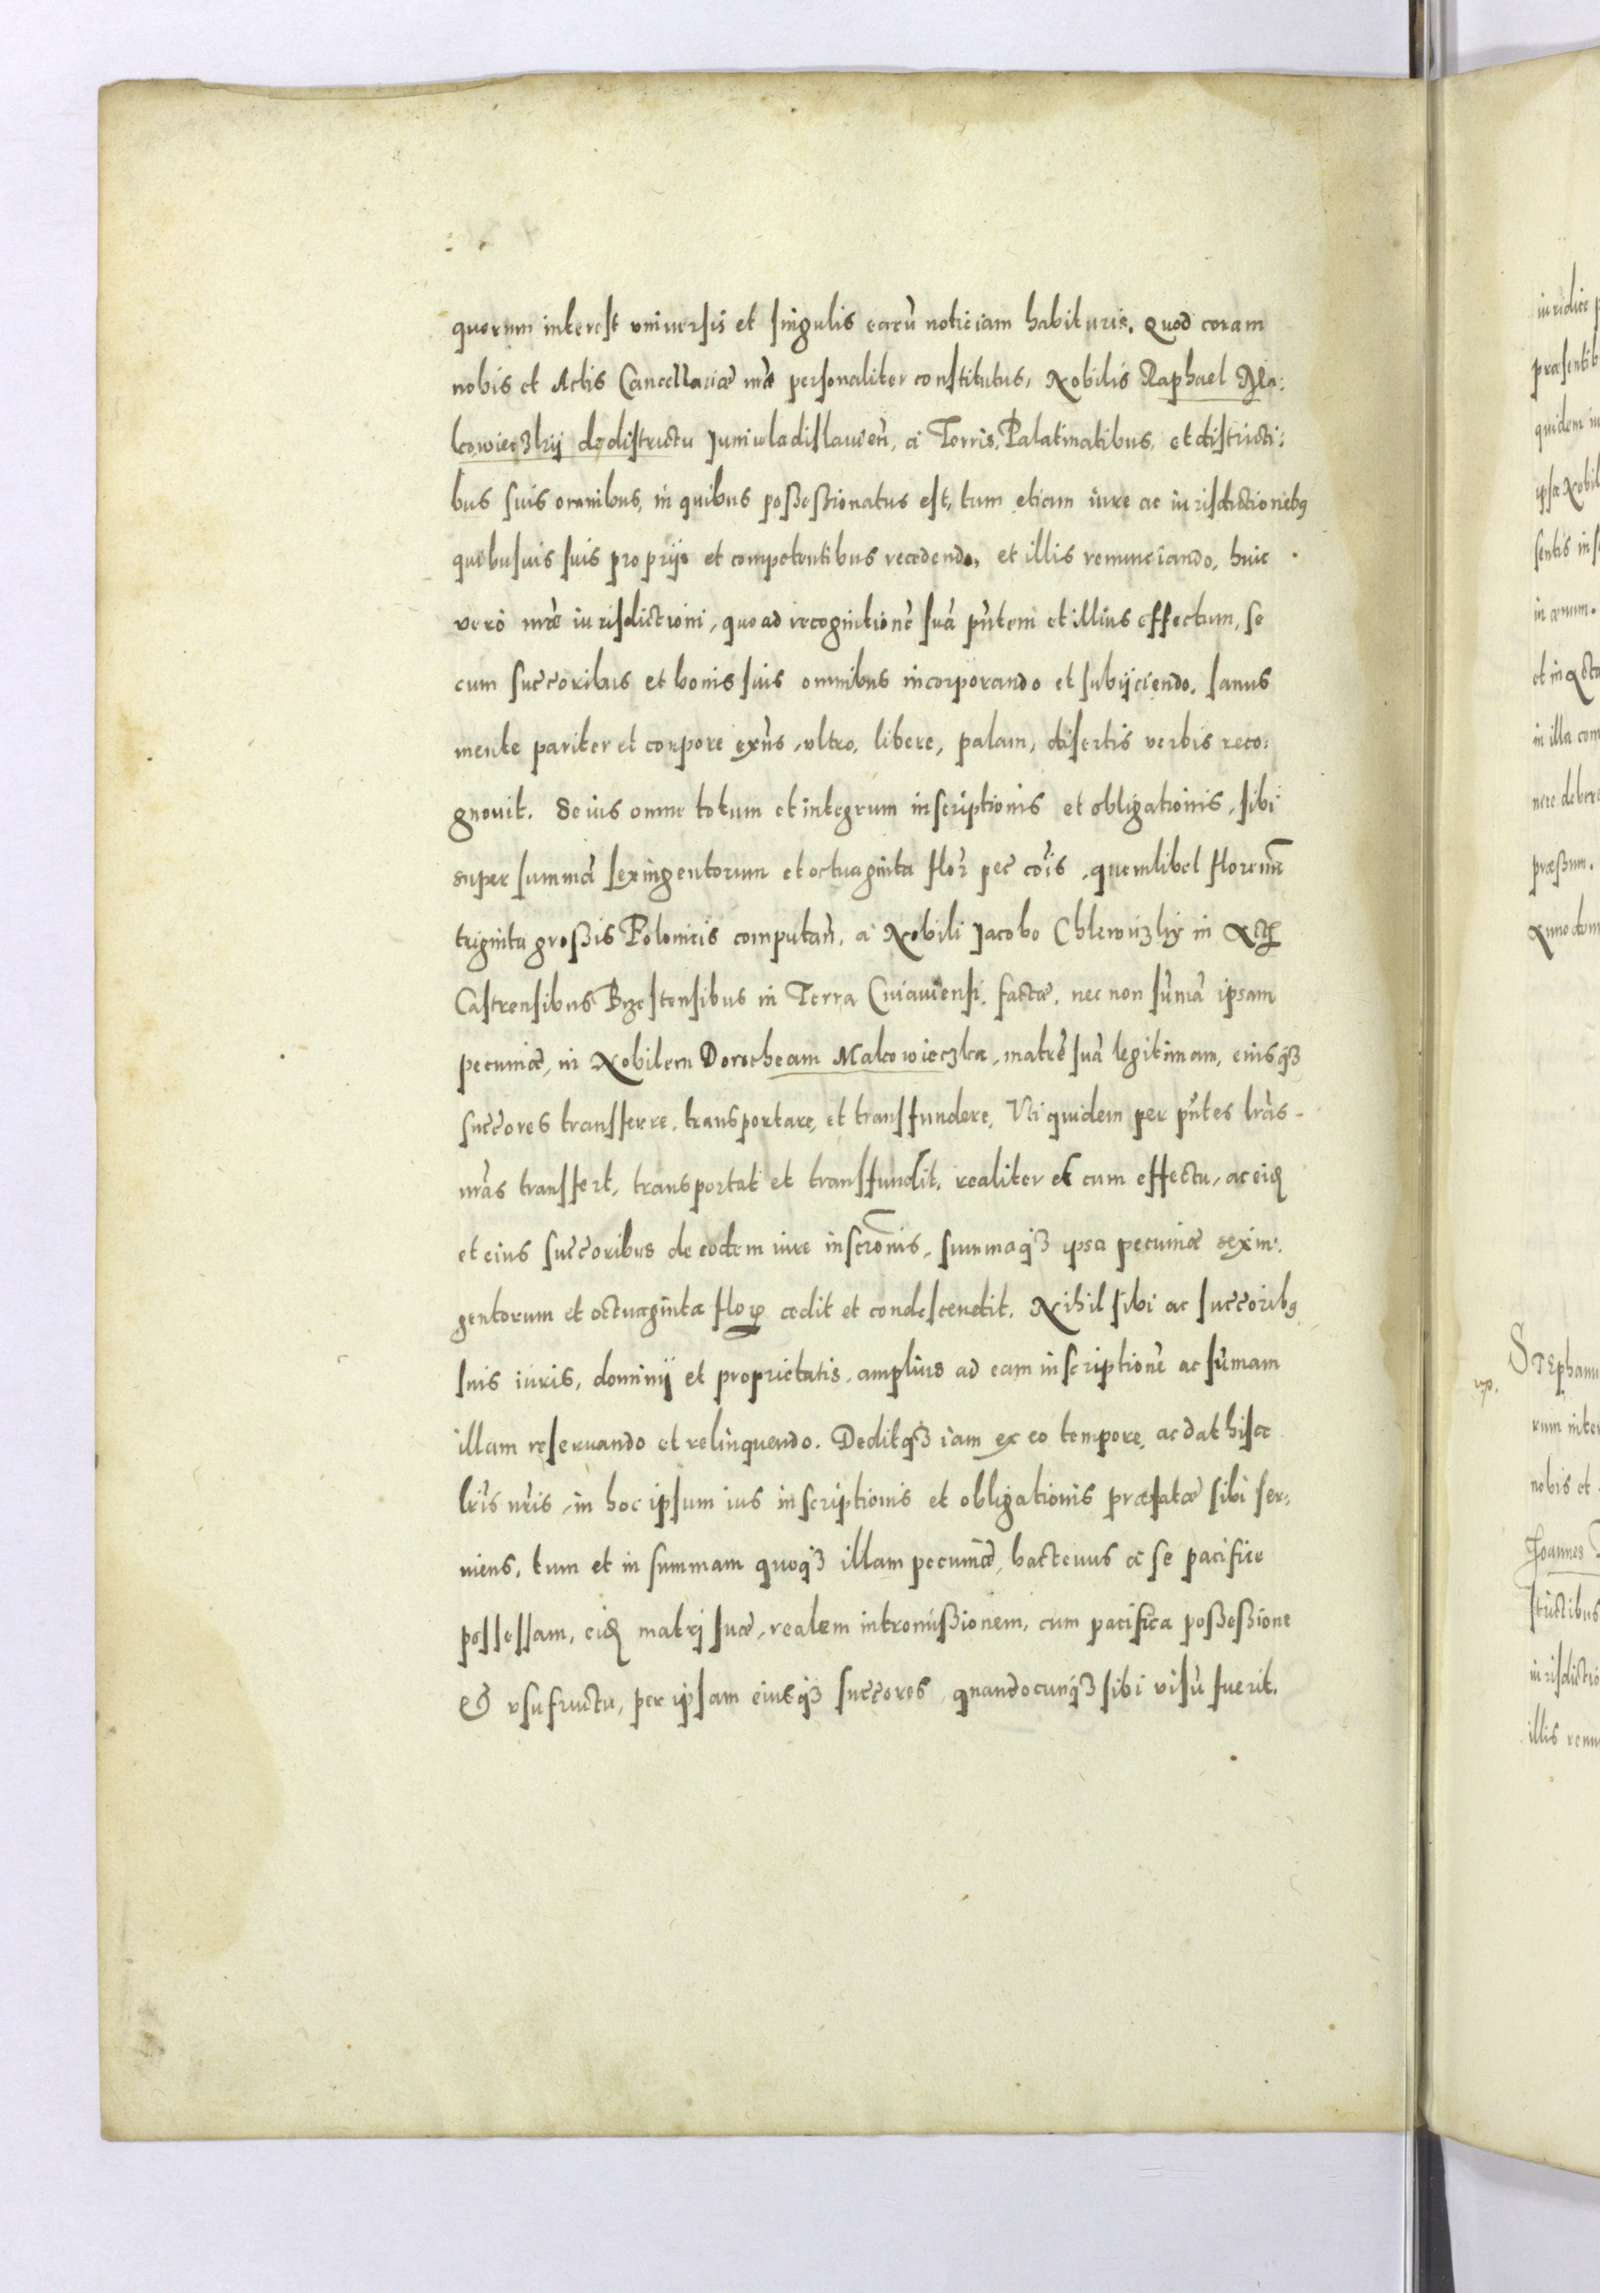 quorum interest vniuersis et singulis earū noticiam habituris. Quod coram
nobis et Actis Cancellariæ nr̄æ personaliter constitutus, Nobilis Raphael Ma:
kowieczkij de districtu Juniuladislauień, à Terris, Palatinatibus, et districti:
bus suis omnibus, in quibus possessionatus est, tum etiam iure ac iurisdictionibꝯ
quibusuis suis proprijs et competentibus recedendo, et illis renunciando, huic
verò nr̄æ iurisdictioni, quoad recognitionē suā pñtem et illius effectum, se
cum succoribus et bonis suis omnibus incorporando et subijciendo, sanus
mente pariter et corpore exñs, vltro, libere, palam, disertis verbis reco:
gnouit. Se ius omne totum et integrum inscriptionis et obligationis, sibi
super summā sexingentorum et octuaginta flor̄ pec̄ cōis, quemlibet florenū
triginta grossis Polonicis computan̄, à Nobili Jacobo Chlewiczky in Actꝭ
Castrensibus Brzestensibus in Terra Cuiauiensi, factæ, nec non sum̄ā ipsam
pecuniæ, in Nobilem Dorotheam Makowieczka, matrē suā legitimam, eiusqꝫ
succores transferre, transportare, et transfundere, Vti quidem per pñtes lrās
nrās transfert, transportat et transfundit, realiter et cum effectu, ac eidꝫ
et eius succoribus de eodem iure inscrōnis, summaqꝫ ipsa pecuniæ sexin:
gentorum et octuaginta florꝝ cedit et condescendit. Nihil sibi ac succoribꝯ
suis iuris, dominij et proprietatis, amplius ad eam inscriptionē ac sum̄am
illam reseruando et relinquendo. Deditqꝫ iam ex eo tempore, ac dat hisce
lrīs nrīs, in hoc ipsum ius inscriptionis et obligationis præfatæ sibi ser:
uiens, tum et in summam quoqꝫ illam pecuniæ, hactenus à se pacifice
possessam, eidꝫ matri suæ, realem intromissionem, cum pacifica possessione
et vsufructu, per ipsam eiusqꝫ succores, quandocunqꝫ sibi visū fuerit.
iuridice
præsentib
quidem
ipsæ Nobil
sentis ins
in æuum.
et in Acta
in illa com
nere debere
præssum.
Anno dom
Stephanu
rum inter
nobis et
Joannes
strictibus
iurisdictio
illis renu